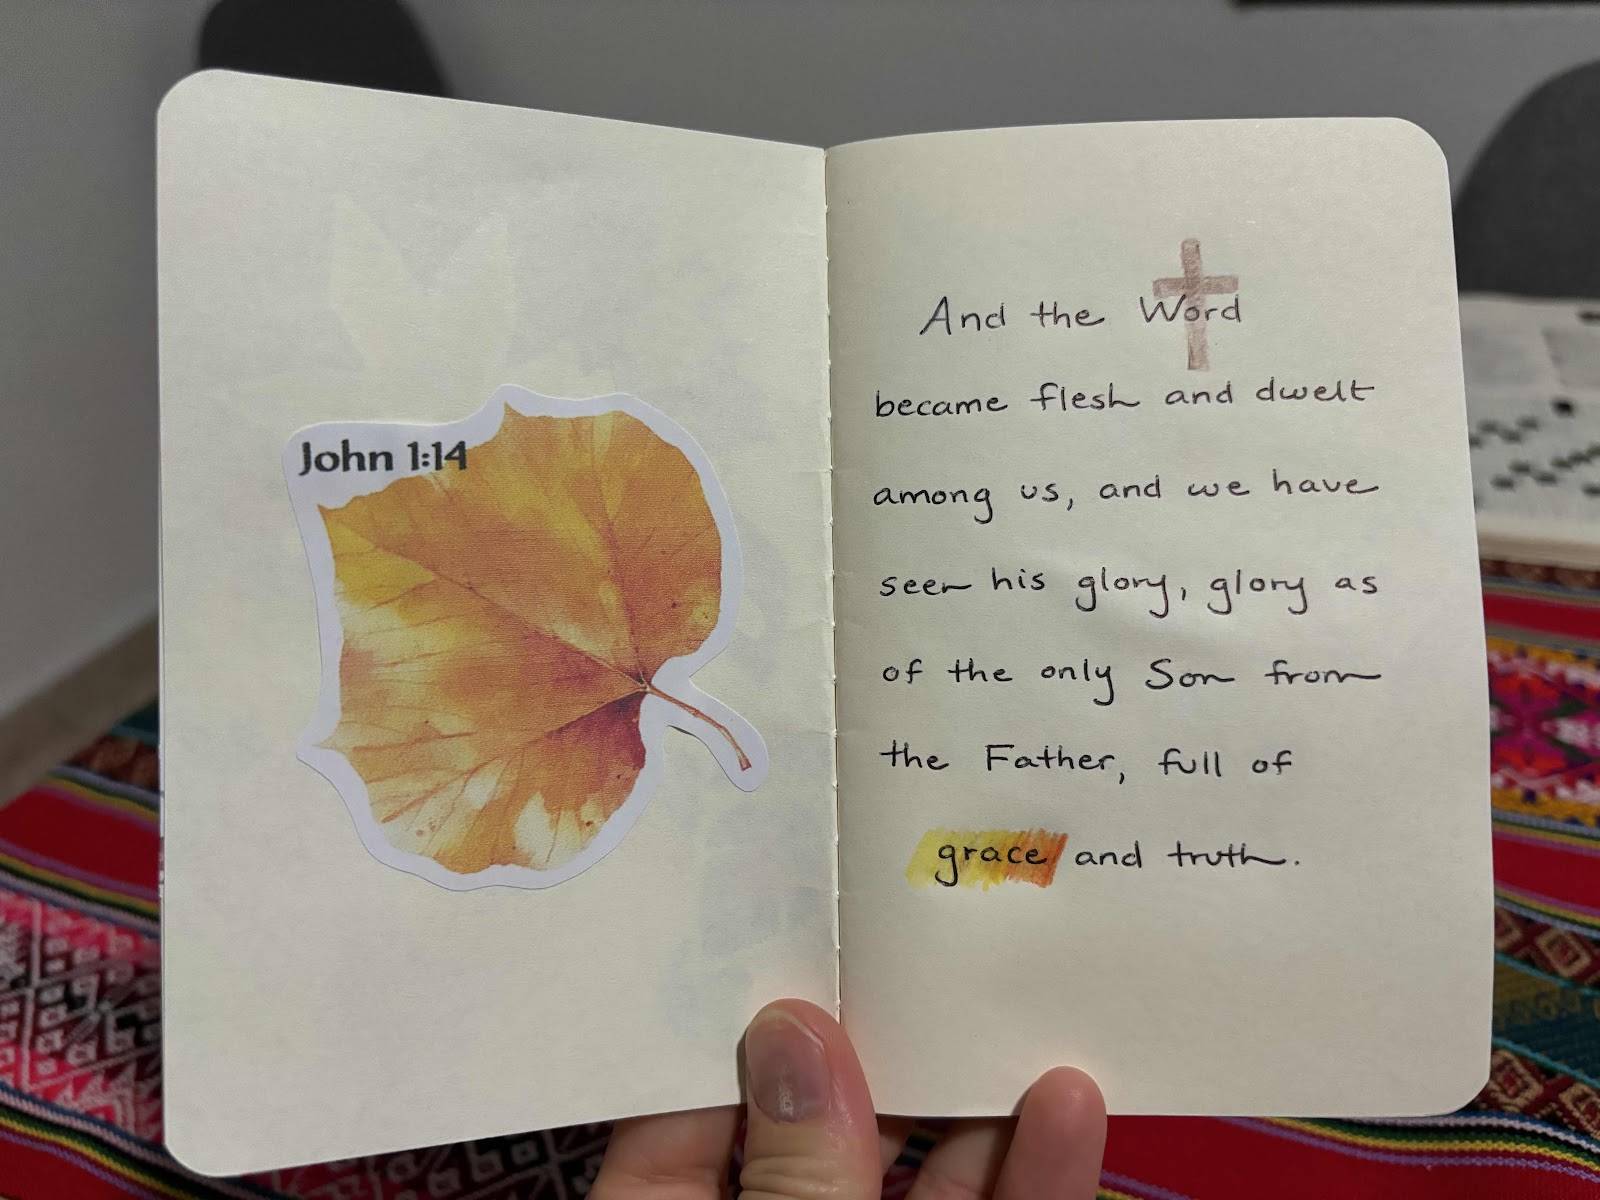 John 1:14
And the Word
became flesh and dwelt
among us, and we have
seen his glory, glory as
of the only Son from
the Father, full of
grace and truth.